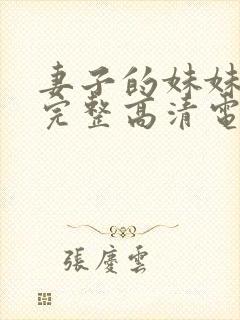 妻子的妹妹
完整高清電
張慶雲